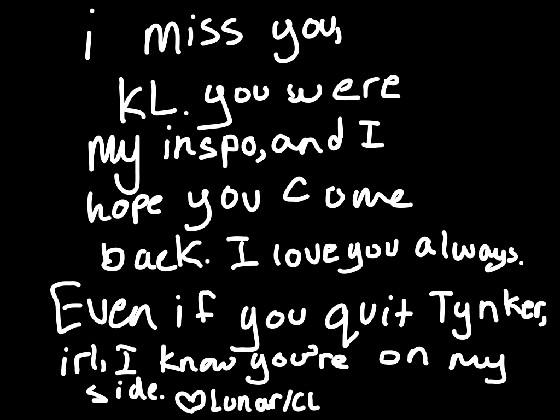 i miss you,
KL. you were
my inspo, and I
hope you come
back. I love you always.
Even if you quit Tynker,
irl, I know you're on my
side. ♡Lunar/CL